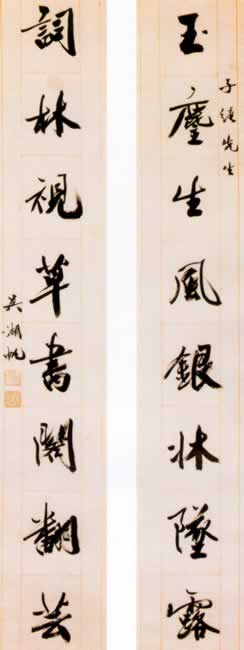 玉麈生風銀牀墜露
子先生
詞林視草書閣翻芸
吳湖帆